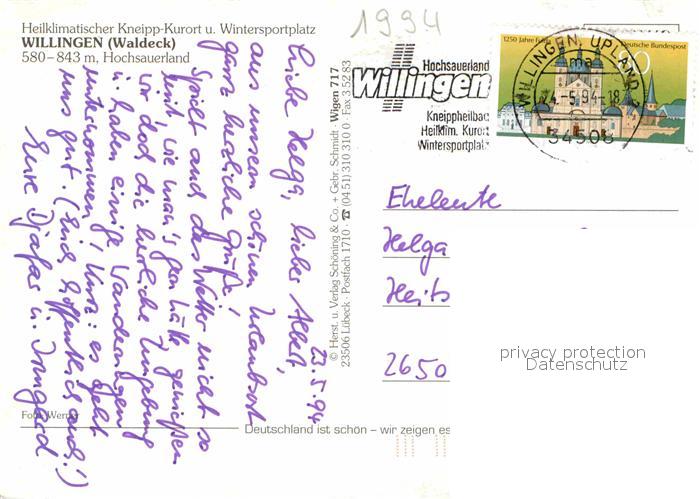 1994
Heilklimatischer Kneipp-Kurort u. Wintersportplatz
WILLINGEN (Waldeck)
580–843 m, Hochsauerland
23.5.94
Liebe Helga, lieber Albert,
aus unserem schönen Urlaubsort
ganz herzliche Grüße!
Spielt auch das Wetter nicht so
mit wie man's gern hätte genießen
wir doch die herrliche Umgebung
u. haben einige Wanderungen
unternommen. Kurz: es geht
uns gut. (Euch hoffentlich auch!)
Eure u. Irmgard
Foto: Werner
© Herst. u. Verlag Schöning & Co. + Gebr. Schmidt · Wigen 717
23506 Lübeck · Postfach 1710 · ☎ (04 51) 310 310 0 · Fax 3 52 83
Deutschland ist schön – wir zeigen es
Hochsauerland
Willingen
Kneippheilbad
Heilklim. Kurort
Wintersportplatz
1250 Jahre Fulda
Deutsche Bundespost
80
WILLINGEN, UPLAND
24.-5.94-18
34508
Eheleute
Helga
Heits
2650
privacy protection
Datenschutz